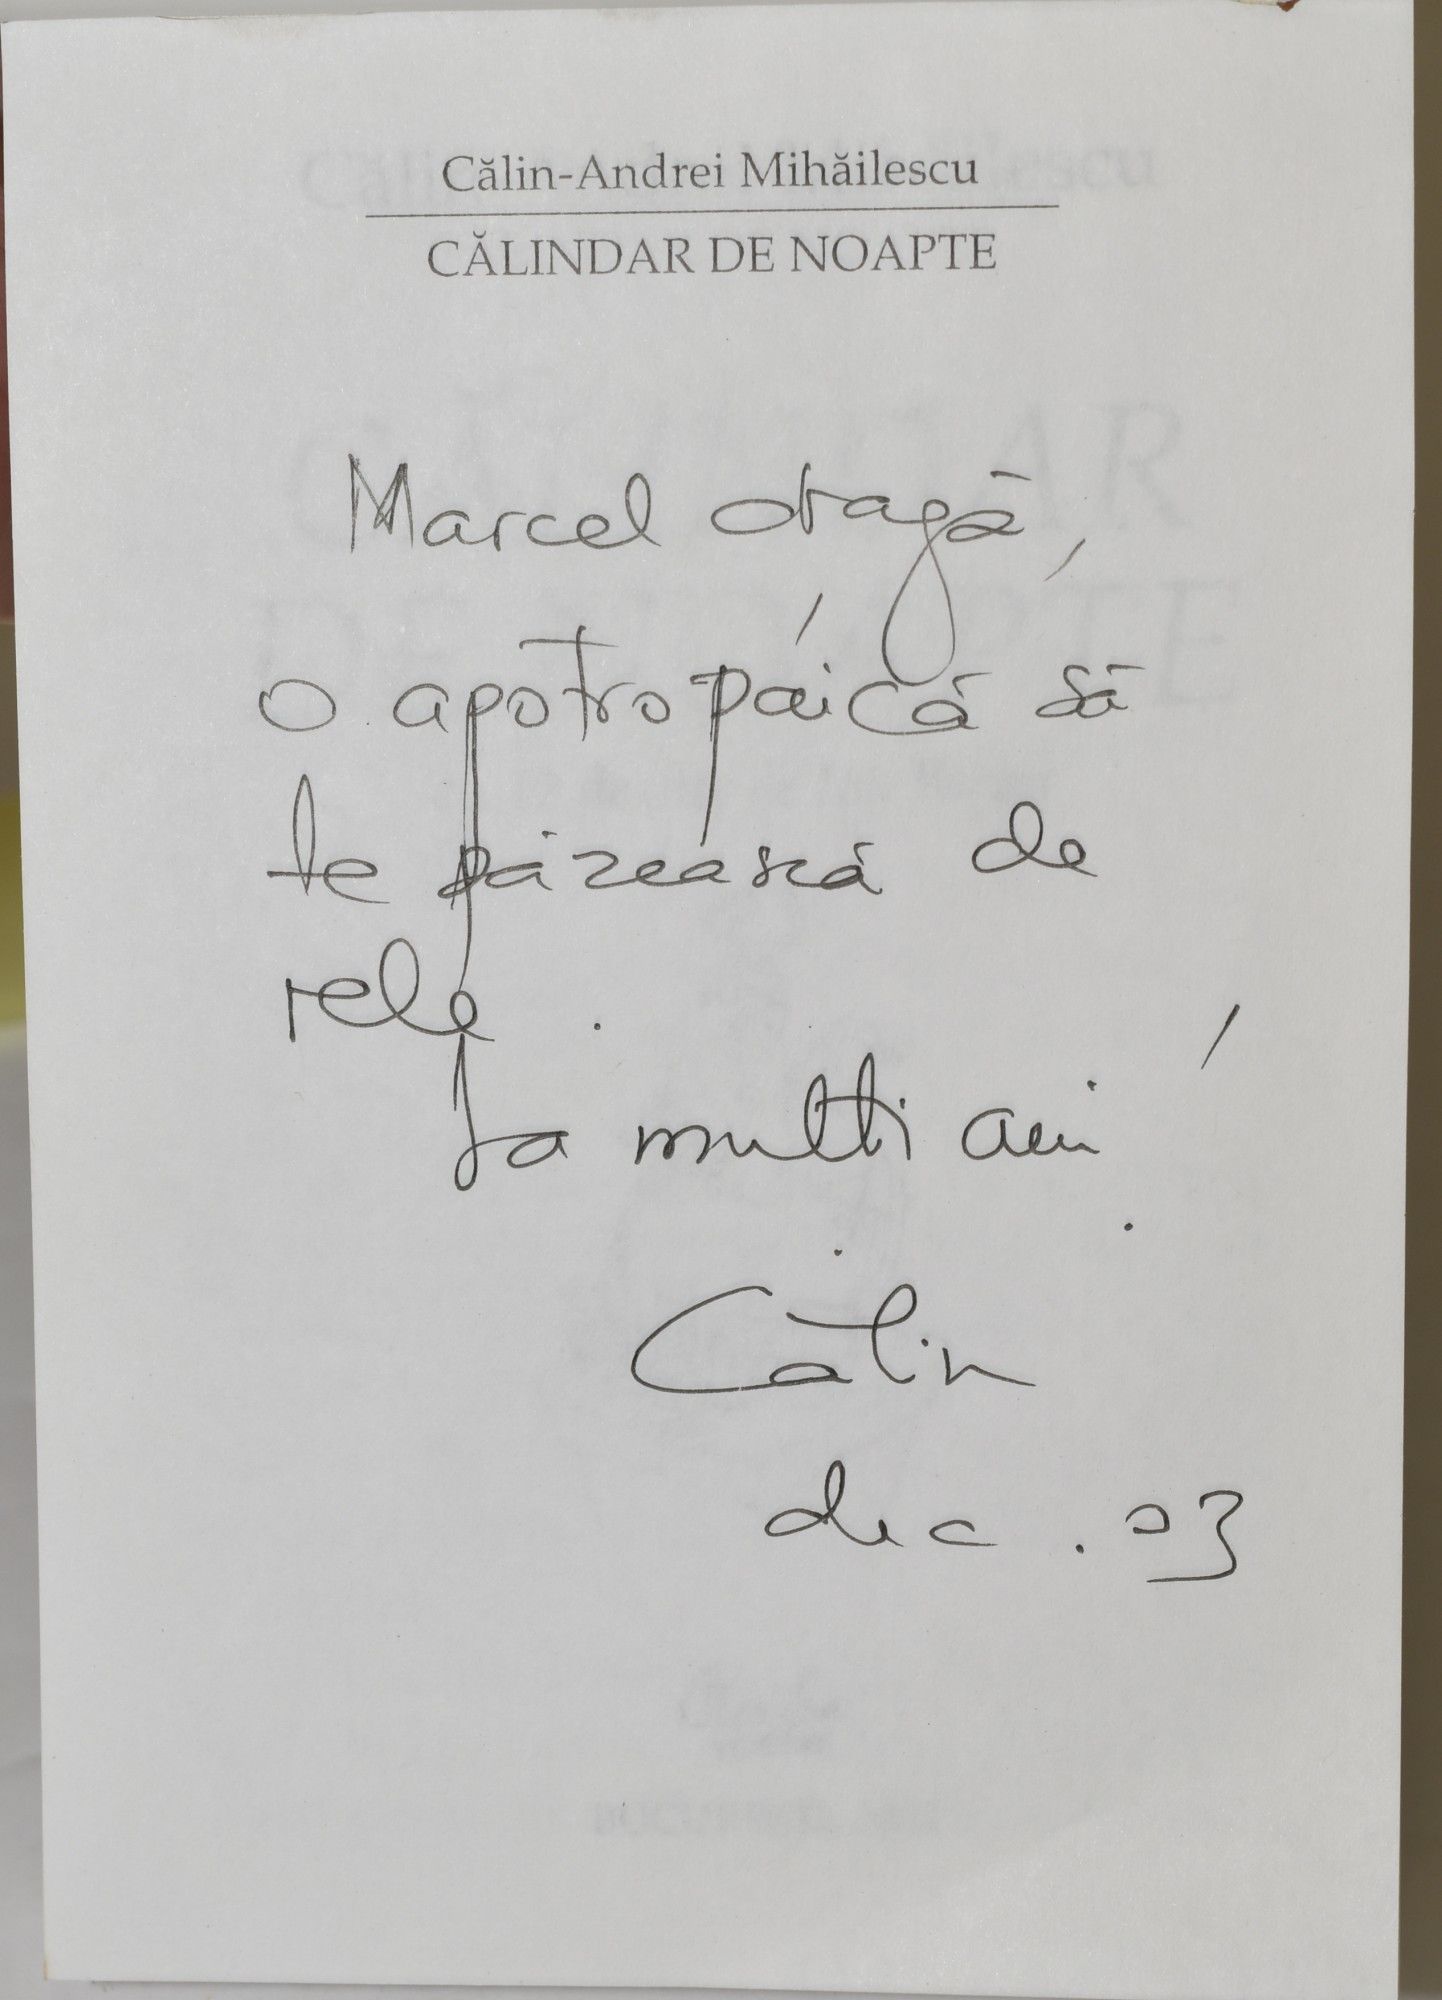 Călin-Andrei Mihăilescu
CĂLINDAR DE NOAPTE
Marcel dragă,
o apotropáică să
te păzească de
rele.
La multi ani!
Călin
dec. 03